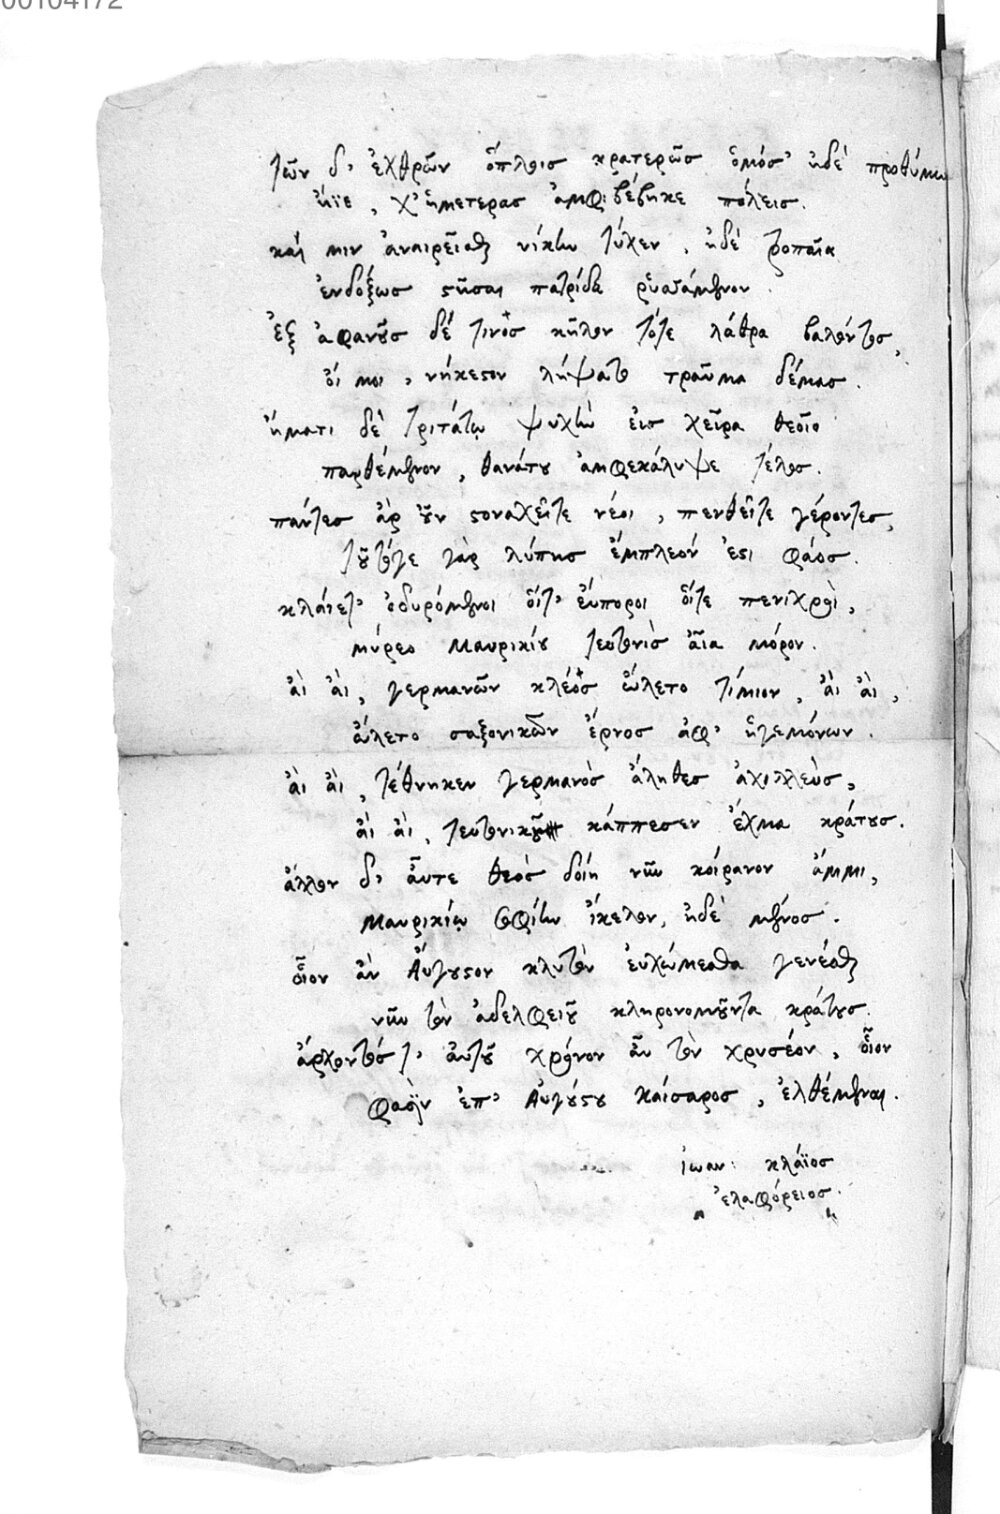 00104172
τῶν δ' ἐχθρῶν ὅπλοισ κρατερῶσ ὁμόσ' ἠδὲ προθύμωσ
ἤϊε, χ' ἡμετερασ ἀμφιβέβηκε πόλεισ.
καί μιν ἀναιρεῖσθαι νίκην τύχεν, ἠδὲ τροπαῖα
ἐνδόξωσ στῆσαι πατρίδα ῥυσάμενον.
ἐξ ἀφανοῦσ δέ τινόσ κῆλον τότε λάθρα βαλόντοσ,
οἴ μοι, νήκεστον λήψατο τραῦμα δέμασ.
ἤματι δὲ τριτάτῳ ψυχὴν εἰσ χεῖρα θεοῖο
παρθέμενον, θανάτου ἀμφεκάλυψε τέλοσ.
πάντεσ ἀρ οὖν στοναχεῖτε νέοι, πενθεῖτε γέροντεσ,
τοῦτόγε γὰρ λύπησ ἔμπλεόν ἐστι φάοσ.
κλάιετ' ὀδυρόμενοι οἵτ' εὔποροι οἵτε πενιχροὶ,
μύρεο Μαυρικίου τευτονὶσ αἶα μόρον.
ἀὶ ἀὶ, γερμανῶν κλέοσ ὤλετο τίμιον, ἀὶ ἀὶ,
ὤλετο σαξονικῶν ἔρνοσ ἀφ' ἡγεμόνων.
ἀὶ ἀὶ, τέθνηκεν γερμανὸσ ἄληθεσ ἀχιλλεὺσ,
ἀὶ ἀὶ, τευτονικοῦ κάππεσεν ἔχμα κράτουσ.
ἄλλον δ' αὖτε θεὸσ δοίη νῦν κοίρανον ἄμμι,
Μαυρικίῳ σοφίην ἴκελον, ἠδὲ μένοσ.
οἷον ἂν Αὔγουστον κλυτὸν εὐχώμεσθα γενέσθαι
νῦν τὸν ἀδελφειοῦ κληρονομοῦντα κράτουσ.
ἄρχοντόσ τ' αὐτοῦ χρόνον ἂν τὸν χρυσέον, οἷον
φασὶν ἐπ' Αὐγούστου καίσαροσ, ἐλθέμεναι.
ἰωαν: κλάϊοσ
ἐλαφόρειοσ.